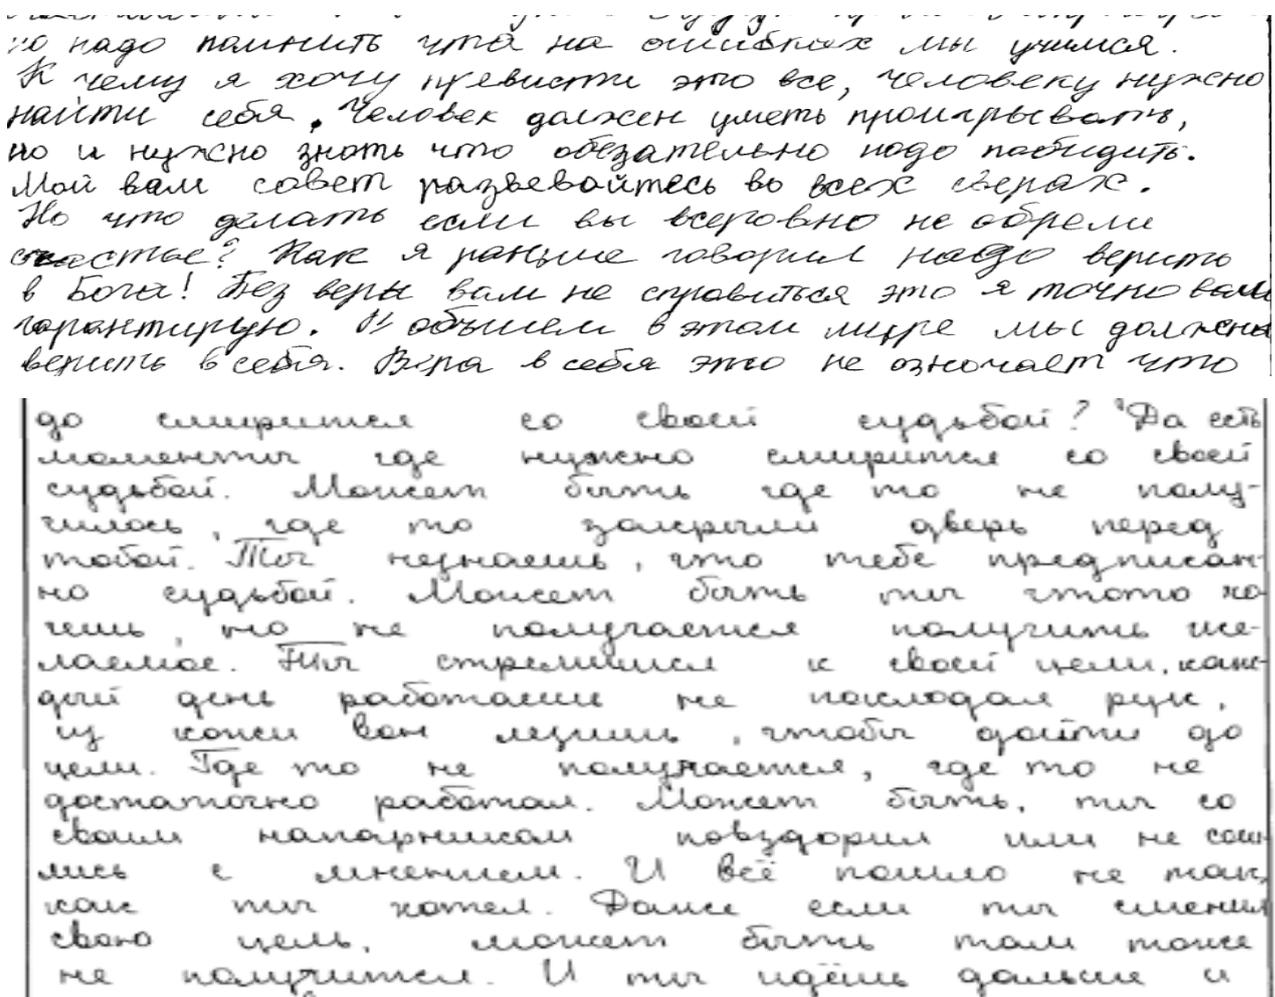 но надо помнить что на ошибках мы учимся.
К чему я хочу превисти это все, человеку нужно
найти себя. Человек должен уметь проигрывать,
но и нужно знать что обезательно надо побидить.
Мой вам совет развевайтесь во всех сверах.
Но что делать если вы всеровно не обрели
счастье? Как я раньше говорил надо верить
в Бога! Без веры вам не справиться это я точно вам
гарантирую. И объшем в этом мире мы должны
верить в себя. Вера в себя это не означает что
до смирится со своей судьбой? Да есть
моменты где нужно смирится со своей
судьбой. Может быть где то не полу-
чилось, где то закрыли дверь перед
тобой. Ты незнаешь, что тебе предписан-
но судьбой. Может быть ты чтото хо-
чешь, но не получается получить же-
лаемое. Ты стремишся к своей цели, каж-
дый день работаеш не покладая рук,
из кожи вон лезишь, чтобы дойти до
цели. Где то не получается, где то не
достаточно работал. Может быть, ты со
своим напарником повздорил или не сош-
лись с мнением. И всё пошло не так,
как ты хотел. Даже если ты сменил
свою цель, может быть там тоже
не получится. И ты идёшь дальше и